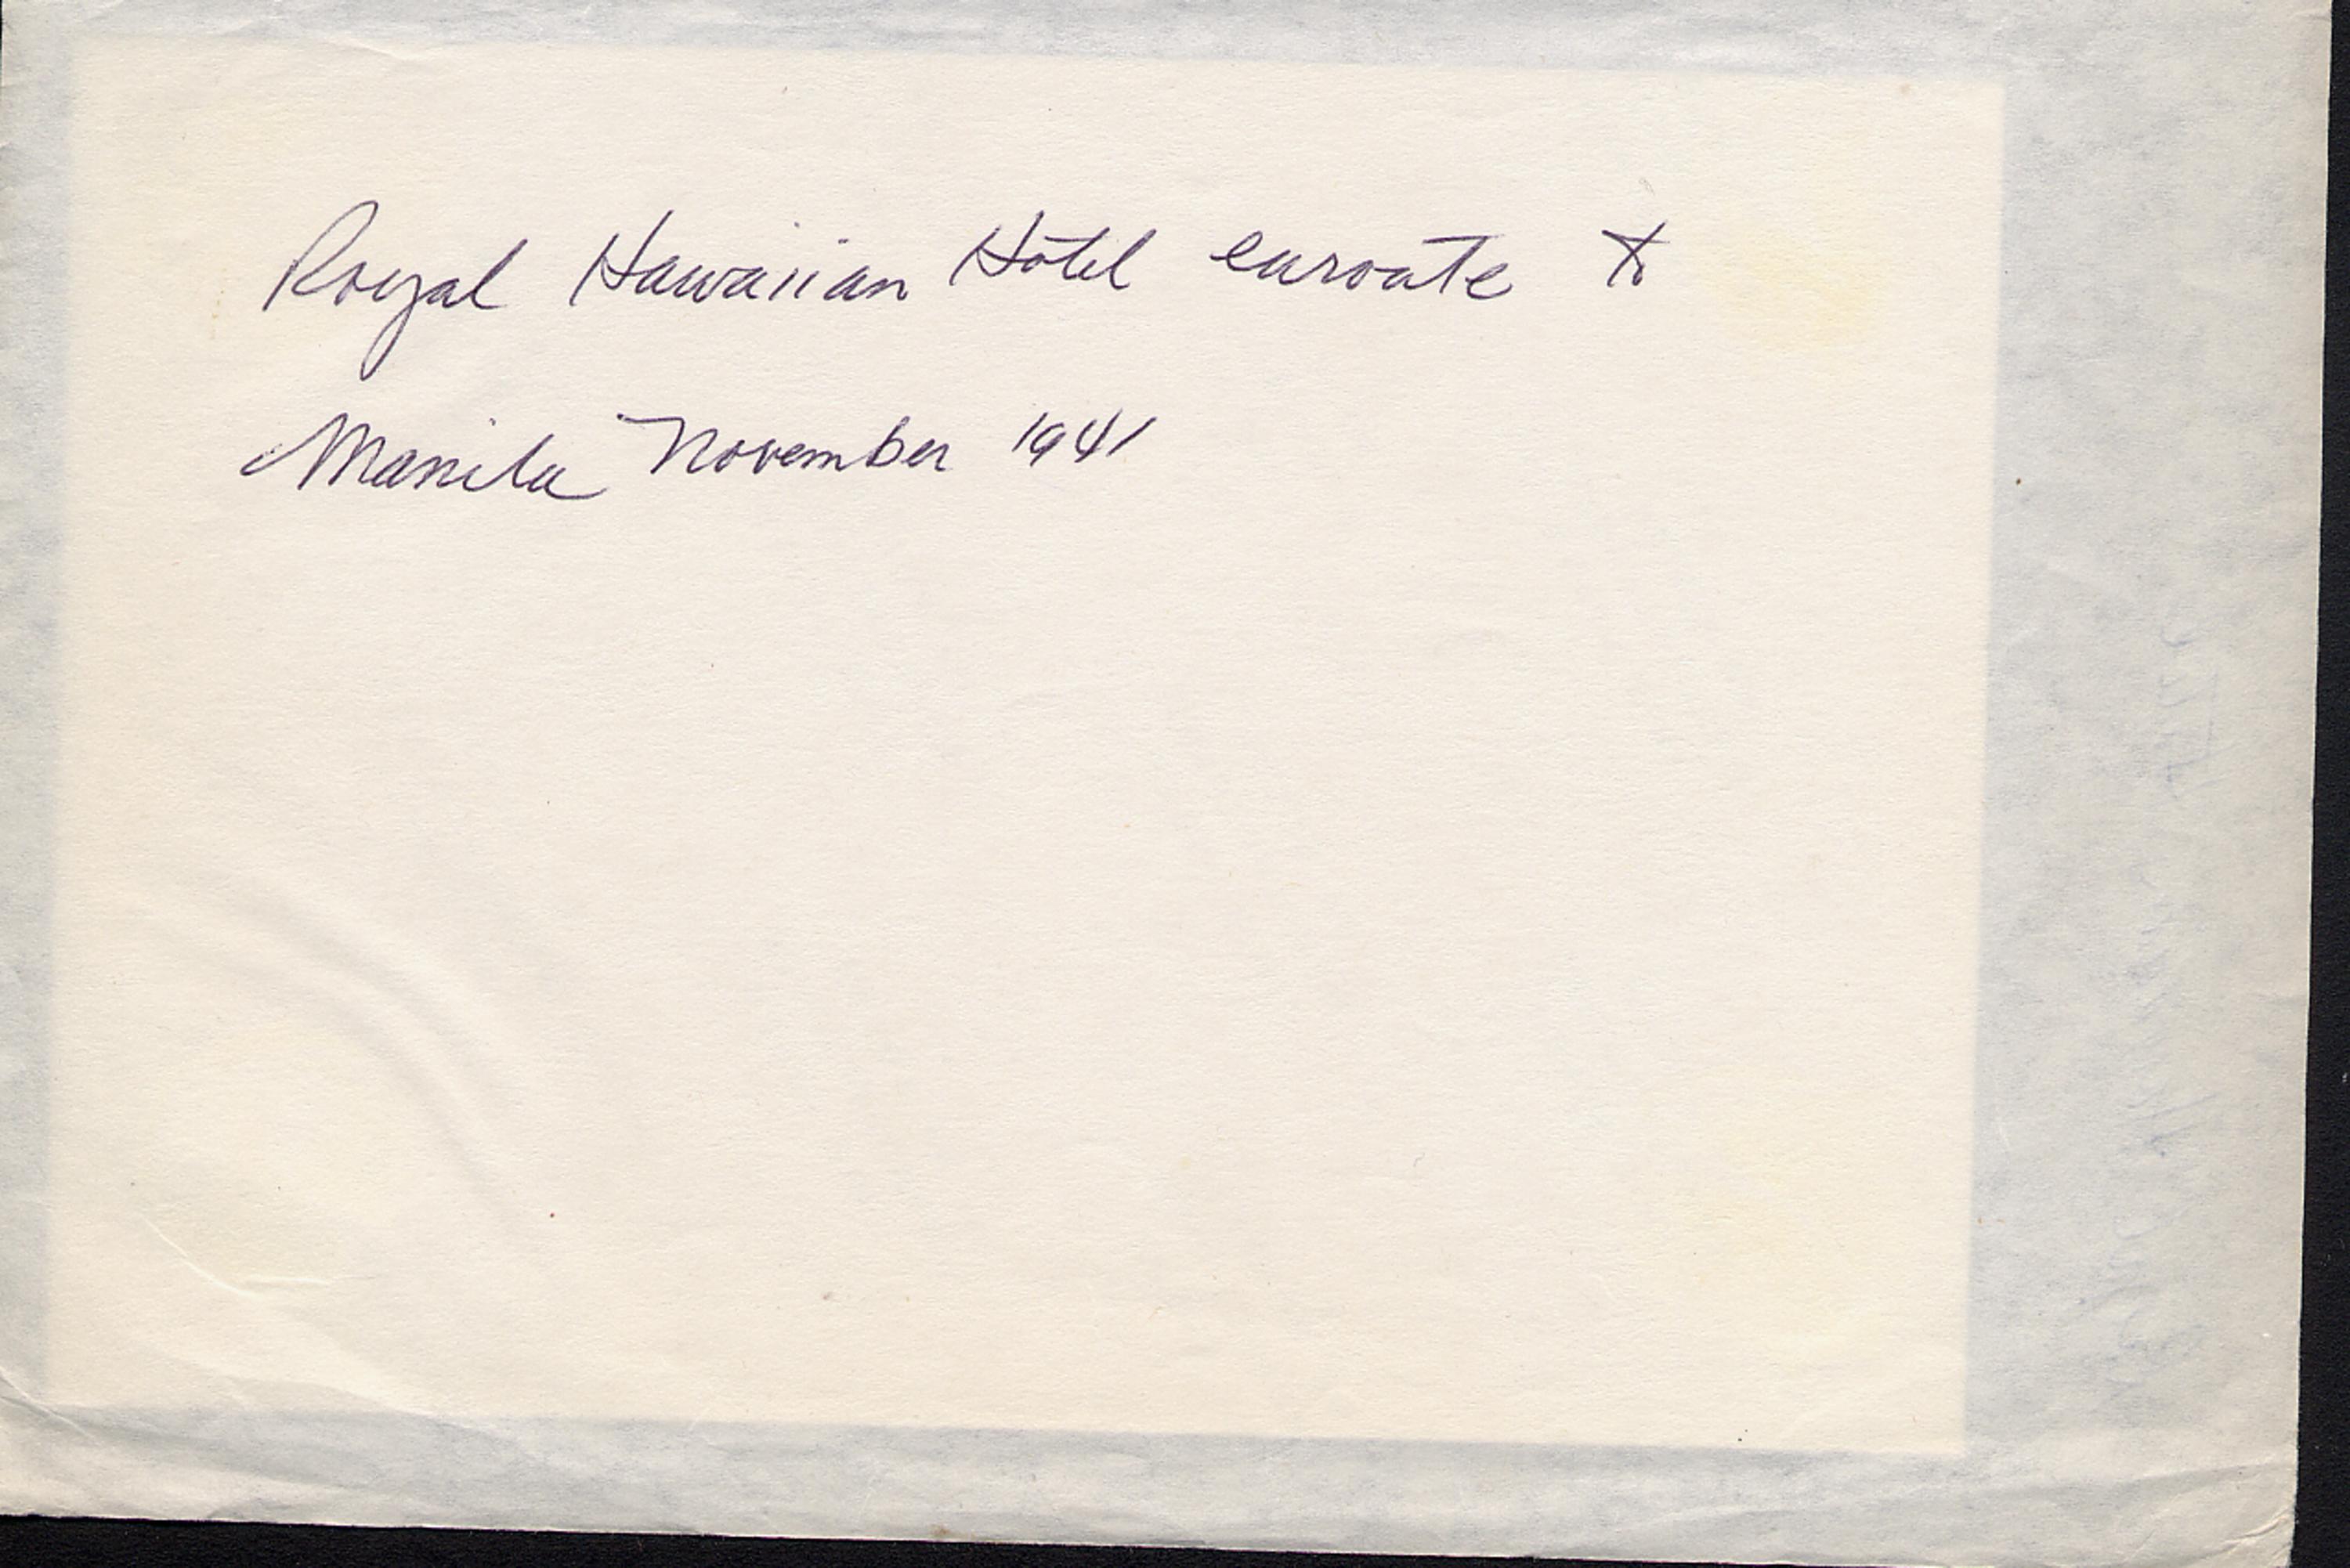 Royal Hawaiian Hotel enroute to
Manila November 1941